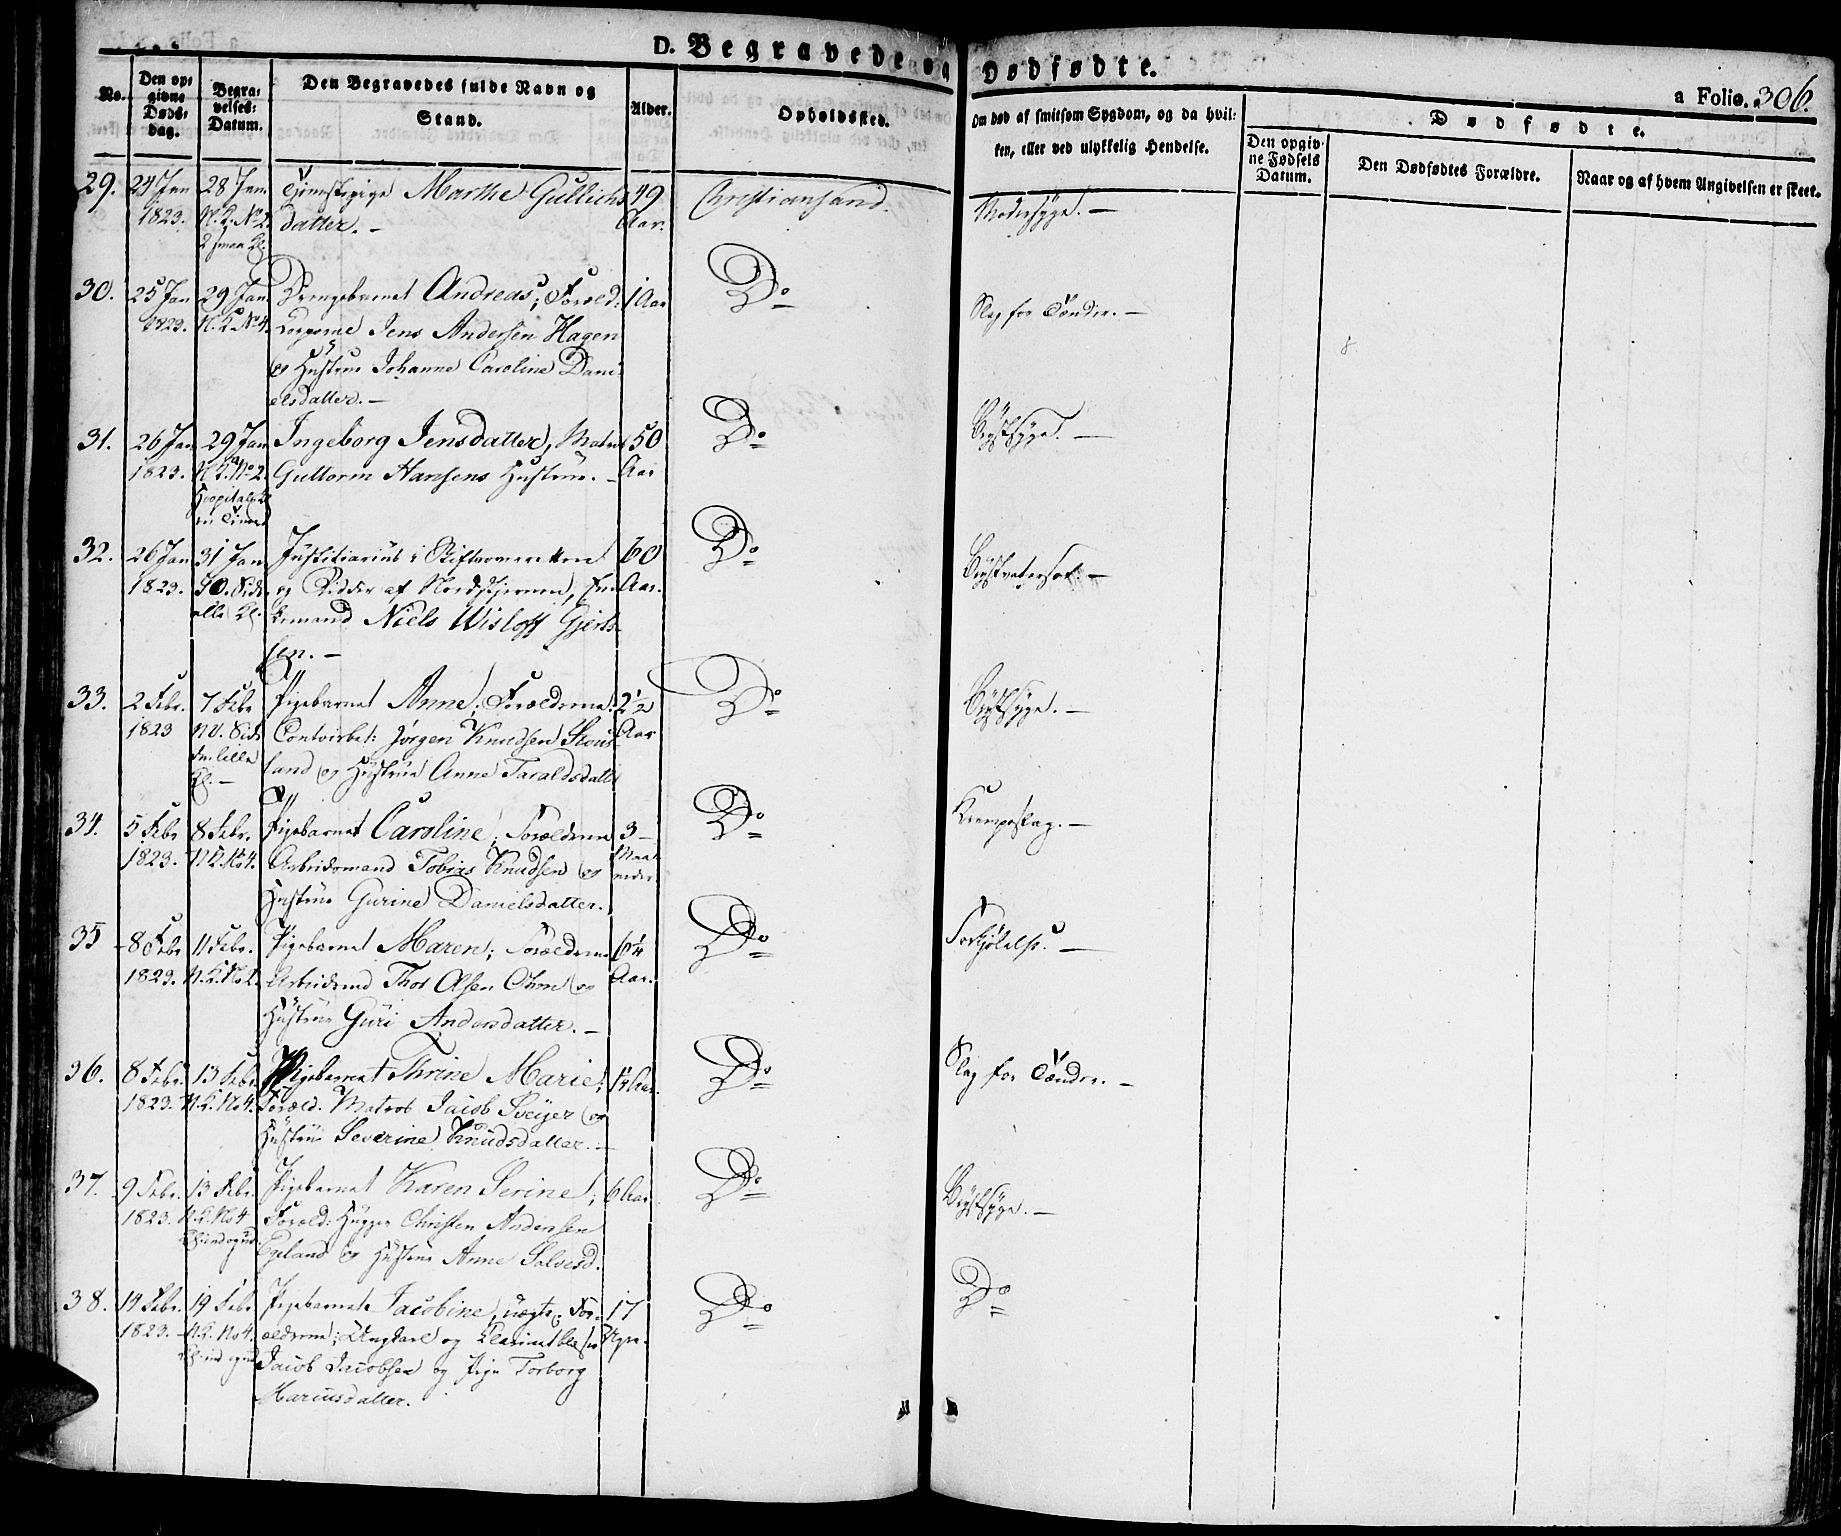 D. Begravede og Dødfødte.
a Folio. 306.
No.
Den opgivne Døds-dag.
Begravelses-Datum.
Den Begravedes fulde Navn og Stand.
Alder.
Opholdssted.
Om død af smitsom Sygdom, og da hvilken, eller ved ulykkelig Hendelse.
Dødfødte.
Den opgivne Fødsels Datum.
Den Dødfødtes Forældre.
Naar og af hvem Angivelsen er skeet.
29. 24 Jan 28 Jan. Tjenstepige Marthe Gullichs 49 Christiansand.
1823. N.K. No 2. datter. — Aar.
30. 25 Jan 29 Jan Drengebarnet Andreas; Foræld: 1 Aar Do Slag for Tænder. —
1823. N.K. No 4. Jens Andersen Hagen
og Hustrue Johanne Caroline Dani-
elsdatter. —
31. 26 Jan 29 Jan Ingeborg Jensdatter, Matros 50 Do Brystsyge. —
1823. N.K. No 2. Guttorm Hansens Hustrue. — Aar
32. 26 Jan 31 Jan Justitiarius i Stiftsoverretten 60 Do Brystvatersot. —
1823. og Ridder af Nordstjernen, En- Aar.
kemand Niels Wisloff Gjerts-
sen. —
33. 2 Febr. 7 Febr Pigebarnet Anne; Forældrene: 2½ Do Brystsyge. —
1823 Jørgen Knudsen Aar
land og Hustrue Anne Taraldsdatter
34. 5 Febr 8 Febr. Pigebarnet Caroline; Forældrene 3 — Do Krampeslag. —
1823. N.K. No 4. Arbeidsmand Tobias Knudsen og Maa-
Hustrue Gurine Danielsdatter. neder
35 8 Febr 11 Febr. Pigebarnet Maren; Forældrene 6¼ Do Forkjølelse. —
1823. Arbeidsmd Thor Olsen og Aar.
Hustrue Guri Andersdatter. —
36. 8 Febr. 13 Febr. Pigebarnet Thrine Marie; Do Slag for Tænder. —
1823. N.K. No 4. Foræld. Matros Jacob og
Hustrue Severine Knudsdatter. —
37. 9 Febr. 13 Febr. Pigebarnet Karen Serine; 6 Aar. Do Brystsyge. —
1823. N.K. No 4 Foræld: Christen Andersen
Egeland og Hustrue Anne Salvesd.
38. 14 Febr. 19 Febr Pigebarnet Jacobine, uægte; For- 17 Do Do
1823. N.K. No 4. ældrene; Ungkarl og Uger.
Jacob Jacobsen og Pige Torborg
Mariusdatter.